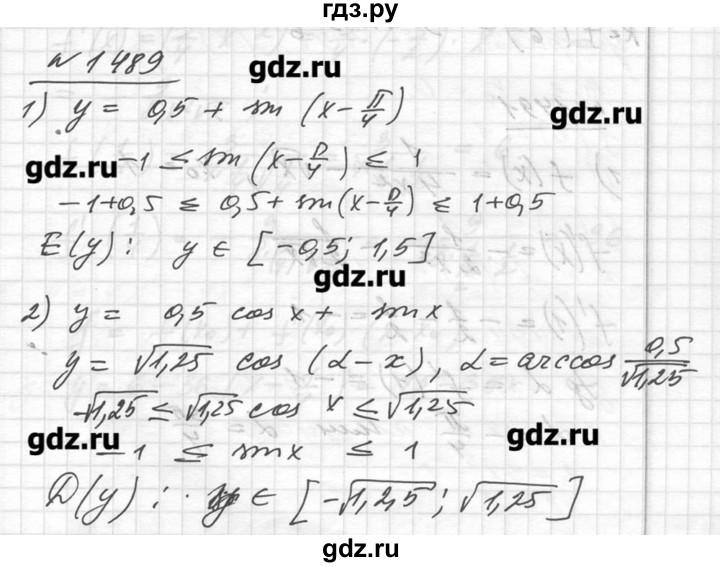 гдз.ру
N 1489
gdz.ru
1) y = 0,5 + sin (x - π/4)
gdz.ru
gdz.ru -1 ≤ sin (x - π/4) ≤ 1
-1+0,5 ≤ 0,5 + sin(x - π/4) ≤ 1+0,5
E(y): y ∈ [-0,5; 1,5]
gdz.ru
2) y = 0,5 cos x + sin x
y = √1,25 cos (α - x), α = arccos 0,5/√1,25
-√1,25 ≤ √1,25 cos x ≤ √1,25
gdz.ru -1 ≤ sin x ≤ 1 gdz.ru
D(y): y ∈ [-√1,25; √1,25]
gdz.ru